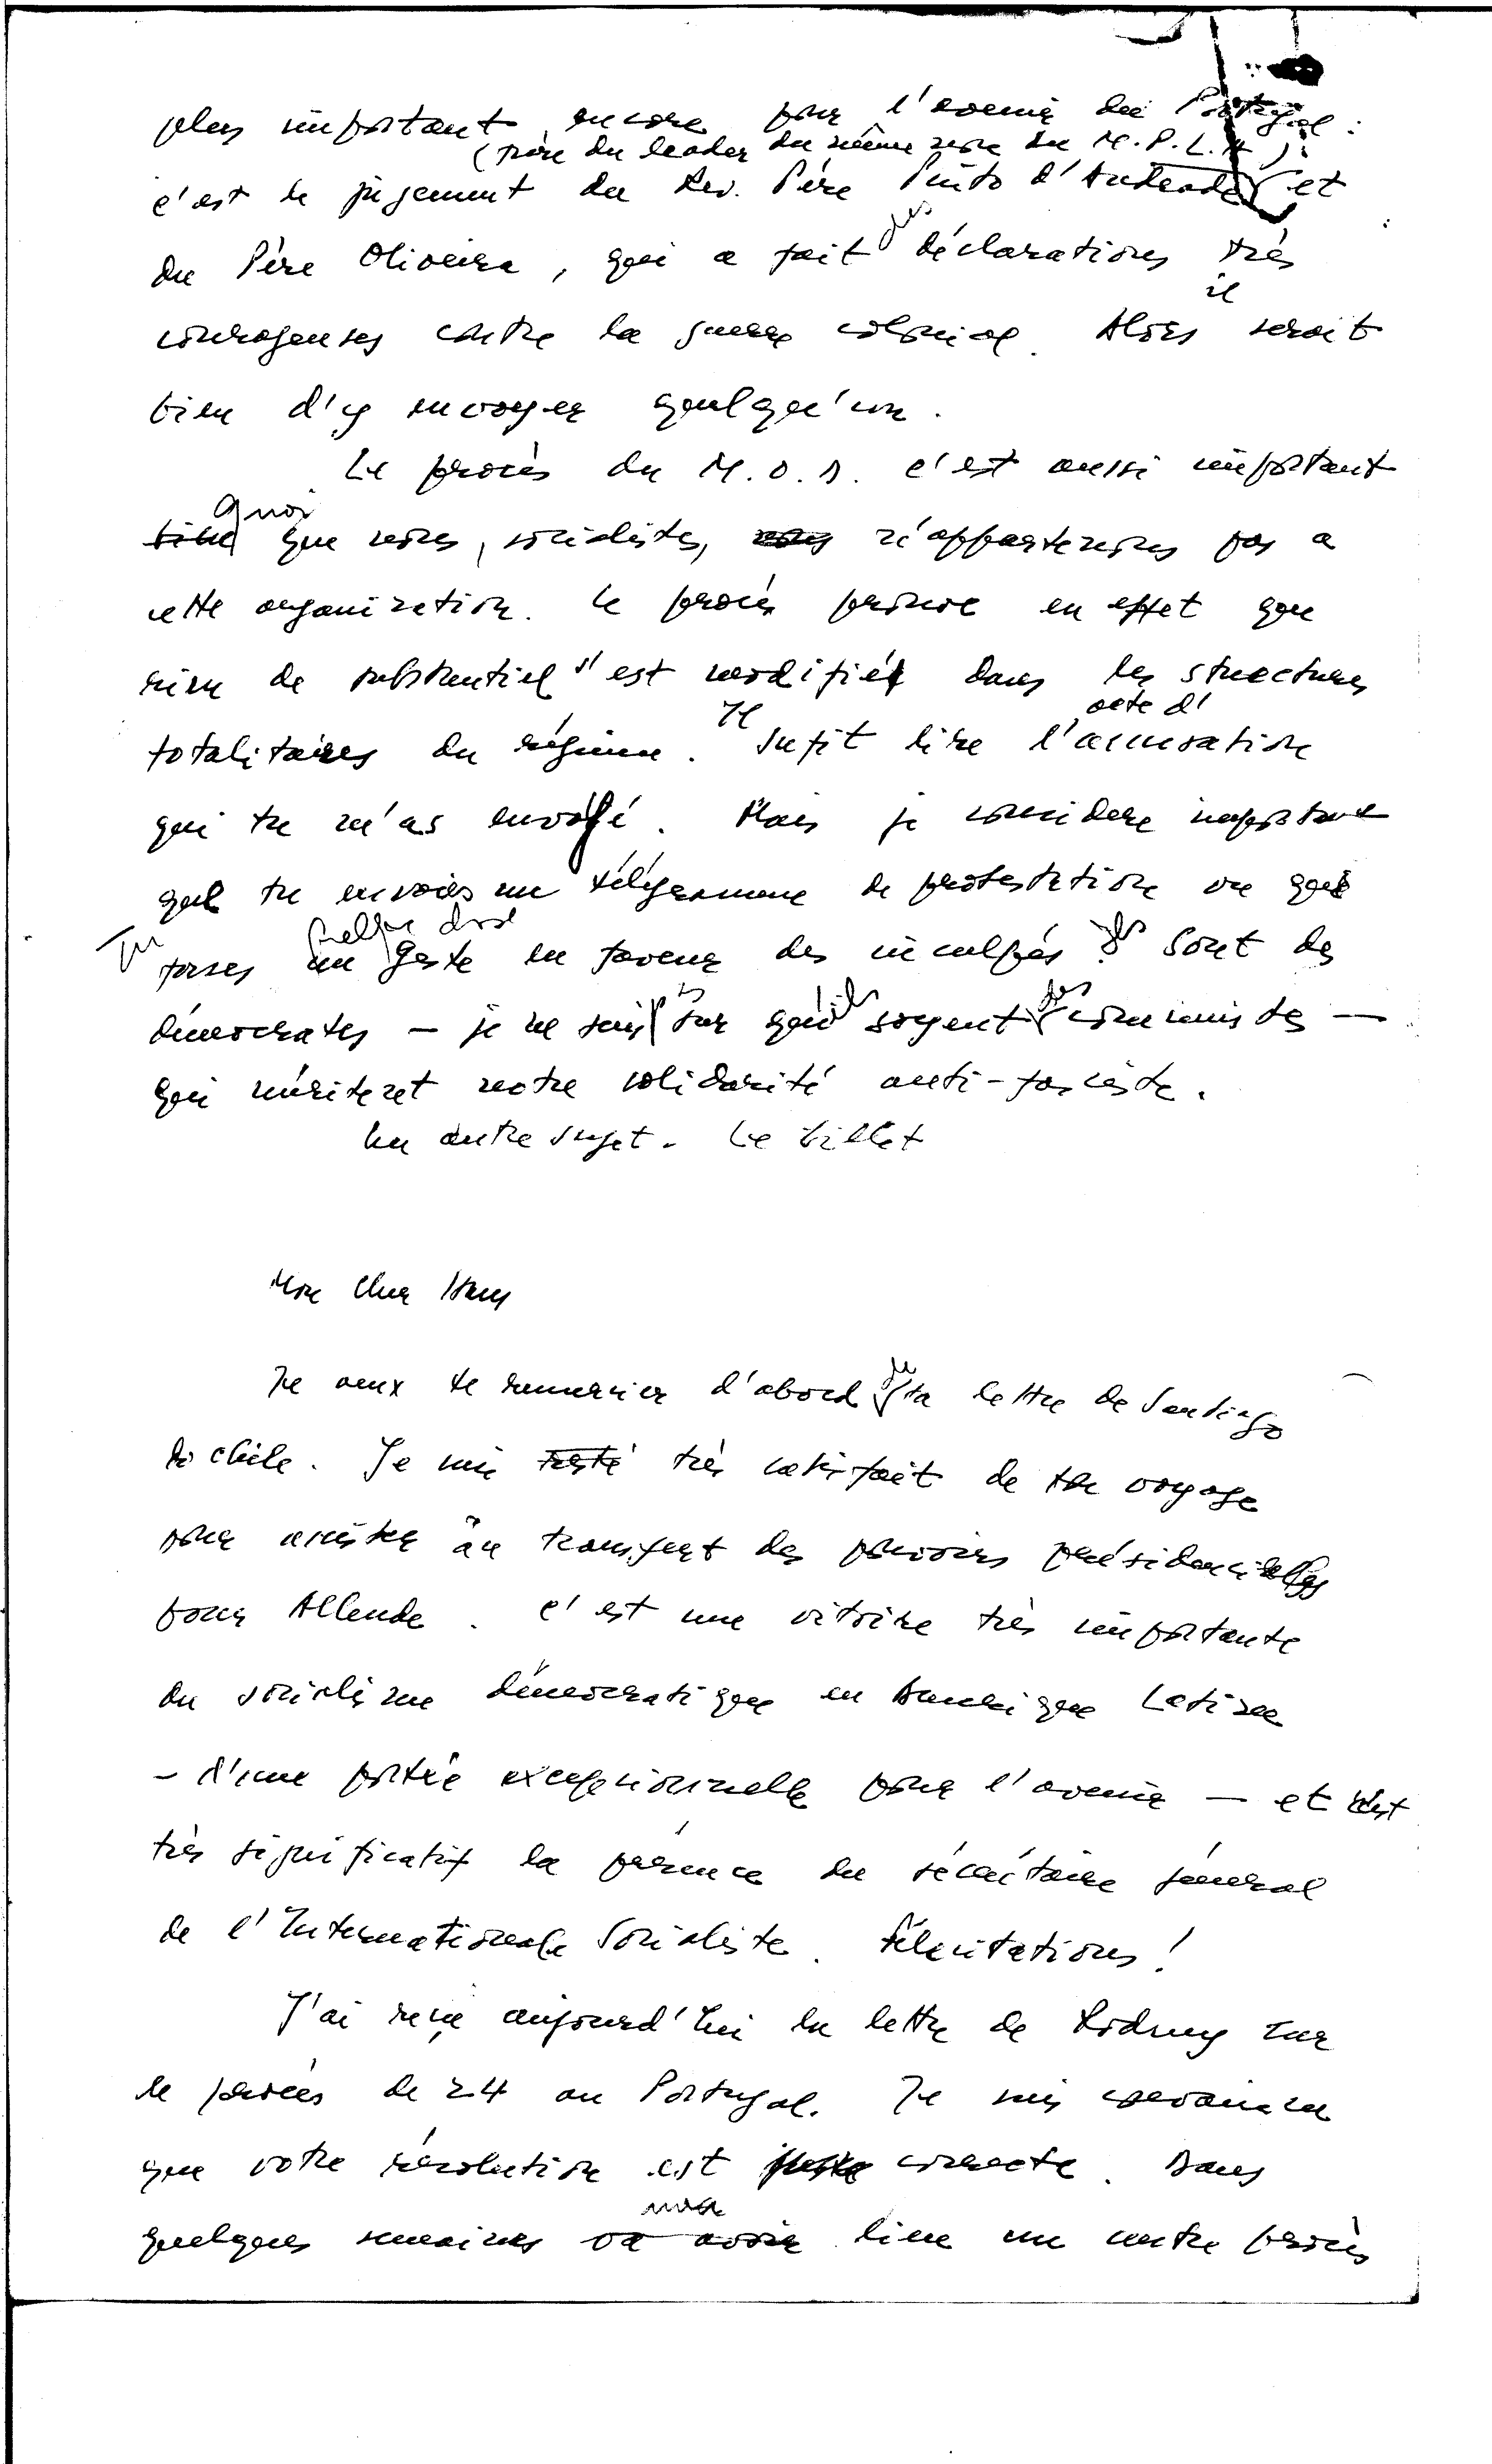 plus important encore pour l'avenir du Portugal :
(frère du leader du même nom du M.P.L.A.)
c'est le jugement du Rev. Père Pinto d'Andrade et
des
du Père Oliveira, qui a fait déclarations très
il
courageuses contre la guerre colonial. Alors serait
bien d'y envoyer quelqu'un.
Le procès du M.D.A. c'est aussi important
quoi
bien que nous, socialistes, nous n'appartenions pas a
cette organization. Le procès prouve en effet que
rien de substantiel s'est modifié dans les structures
Il acte d'
totalitaires du régime. Sufit lire l'accusation
qui tu m'as envoyé. Mais je considere important
que tu envoies un télégramme de protestation ou que
Tu quelque chose ils
fasses un geste en faveur des inculpés. Sont des
ils des
démocrates — je ne suis pas sur qui soyent communistes —
qui méritent notre solidarité anti-fasciste.
Un autre sujet. Le billet
Mon cher Hans
de
Je veux te remercier d'abord ta lettre de Santiago
de Chile. Je suis resté très satisfait de ton voyage
pour assister au transfert des pouvoirs présidencielles
pour Allende. C'est une vitoire très importante
du socialisme démocratique en Amerique Latine
— d'une portée excepcionnelle pour l'avenir — et c'est
très significatif la présence du sécrétaire général
de l'Internationale Socialiste. Félicitations !
J'ai reçu aujourd'hui la lettre de Rodney sur
le procès de 24 au Portugal. Je suis convaincu
que votre résolution est juste correcte. Dans
quelques semaines va avoir lieu un autre procès